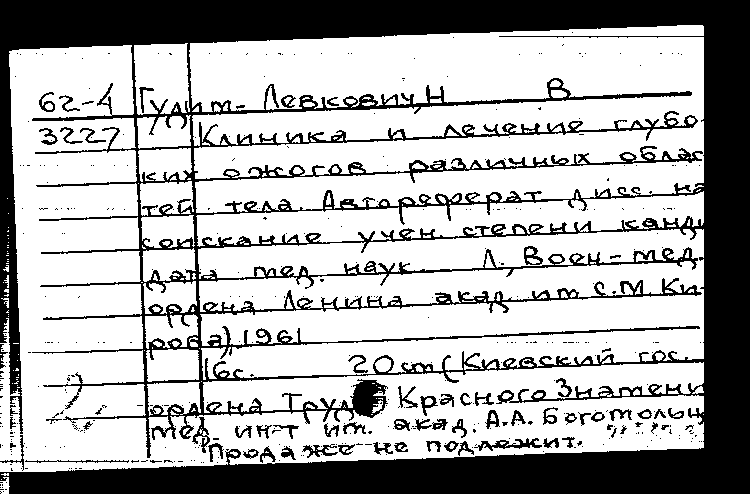 62-4 Гудим-Левкович, Н В
3227 Клиника и лечение глубо-
ких ожогов различных облас
тей тела. Автореферат дисс. на
соискание учен. степени канди
дата мед. наук. Л., Воен-мед.
ордена Ленина акад. им С.М. Ки-
рова), 1961
16с. 20 см (Киевский гос.
ордена Труд Красного Знамени
мед. ин-т им. акад. А.А. Богомольц
Продаже не подлежит.
2